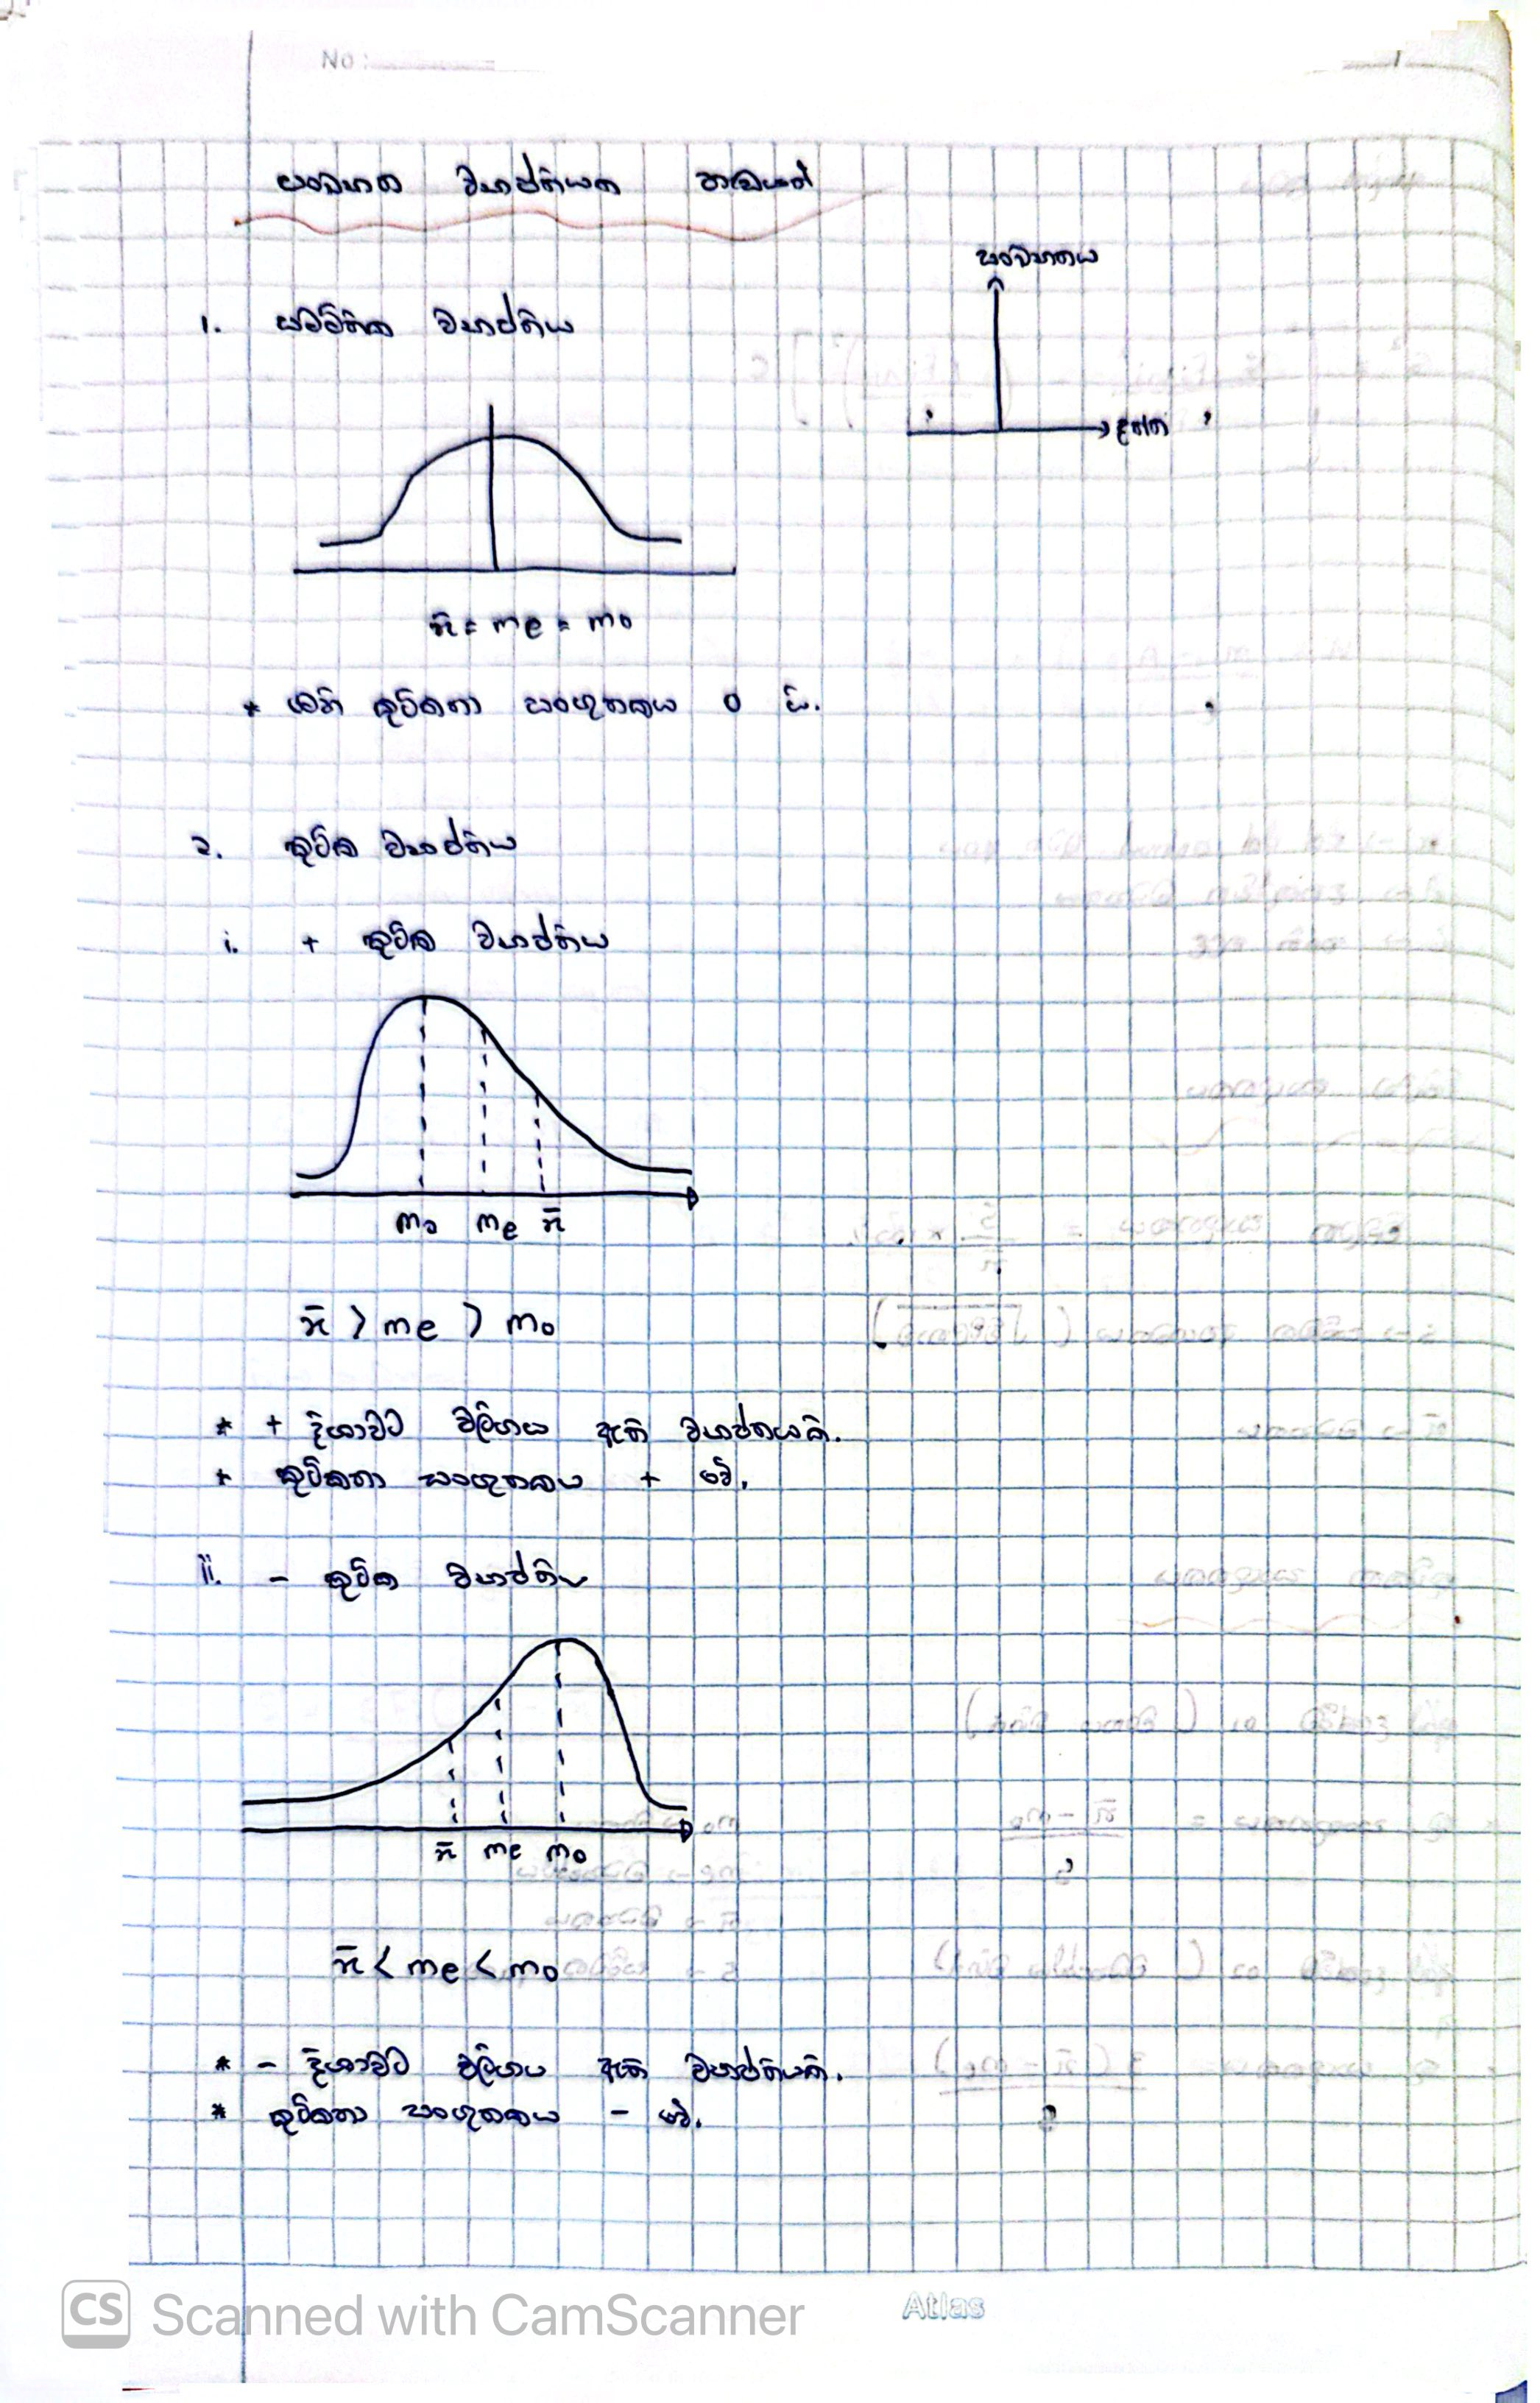 No:
සංඛ්‍යාත ව්‍යාප්තියක හැඩයන්
සංඛ්‍යාතය
1. සමමිතික ව්‍යාප්තිය
දත්ත
x̄ = me = mo
* මෙහි කුටිකතා සංගුණකය 0 යි.
2. කුටික ව්‍යාප්තිය
i. + කුටික ව්‍යාප්තිය
mo me x̄
x̄ > me > mo
* + දිශාවට වලිගය ඇති ව්‍යාප්තියකි.
* කුටිකතා සංගුණකය + වේ.
ii. - කුටික ව්‍යාප්තිය
x̄ me mo
x̄ < me < mo
* - දිශාවට වලිගය ඇති ව්‍යාප්තියකි.
* කුටිකතා සංගුණකය - වේ.
CS Scanned with CamScanner
Atlas